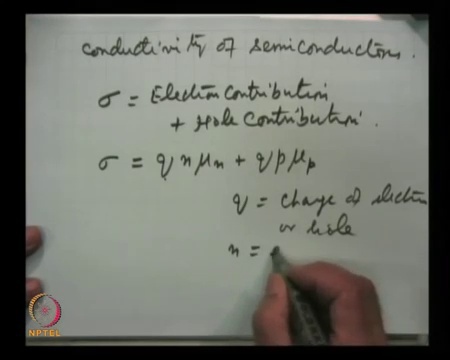 conductivity of semiconductors.
σ = Electron contribution
+ Hole Contribution.
σ = q n μn + q p μp
q = charge of electron
or hole
n =
NPTEL